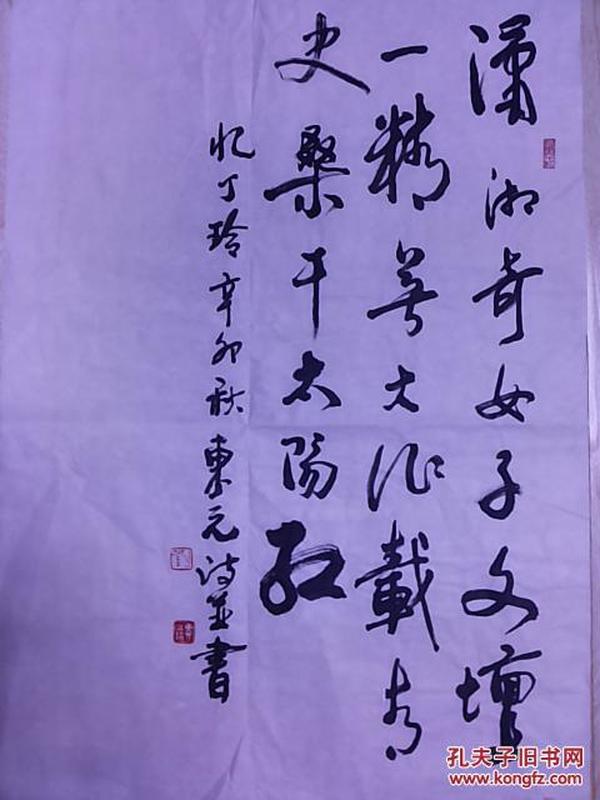 潇湘奇女子文壇
一精英大作載青
史桑干太陽紅
忆丁玲辛卯秋東元诗並書
孔夫子旧书网
www.kongfz.com